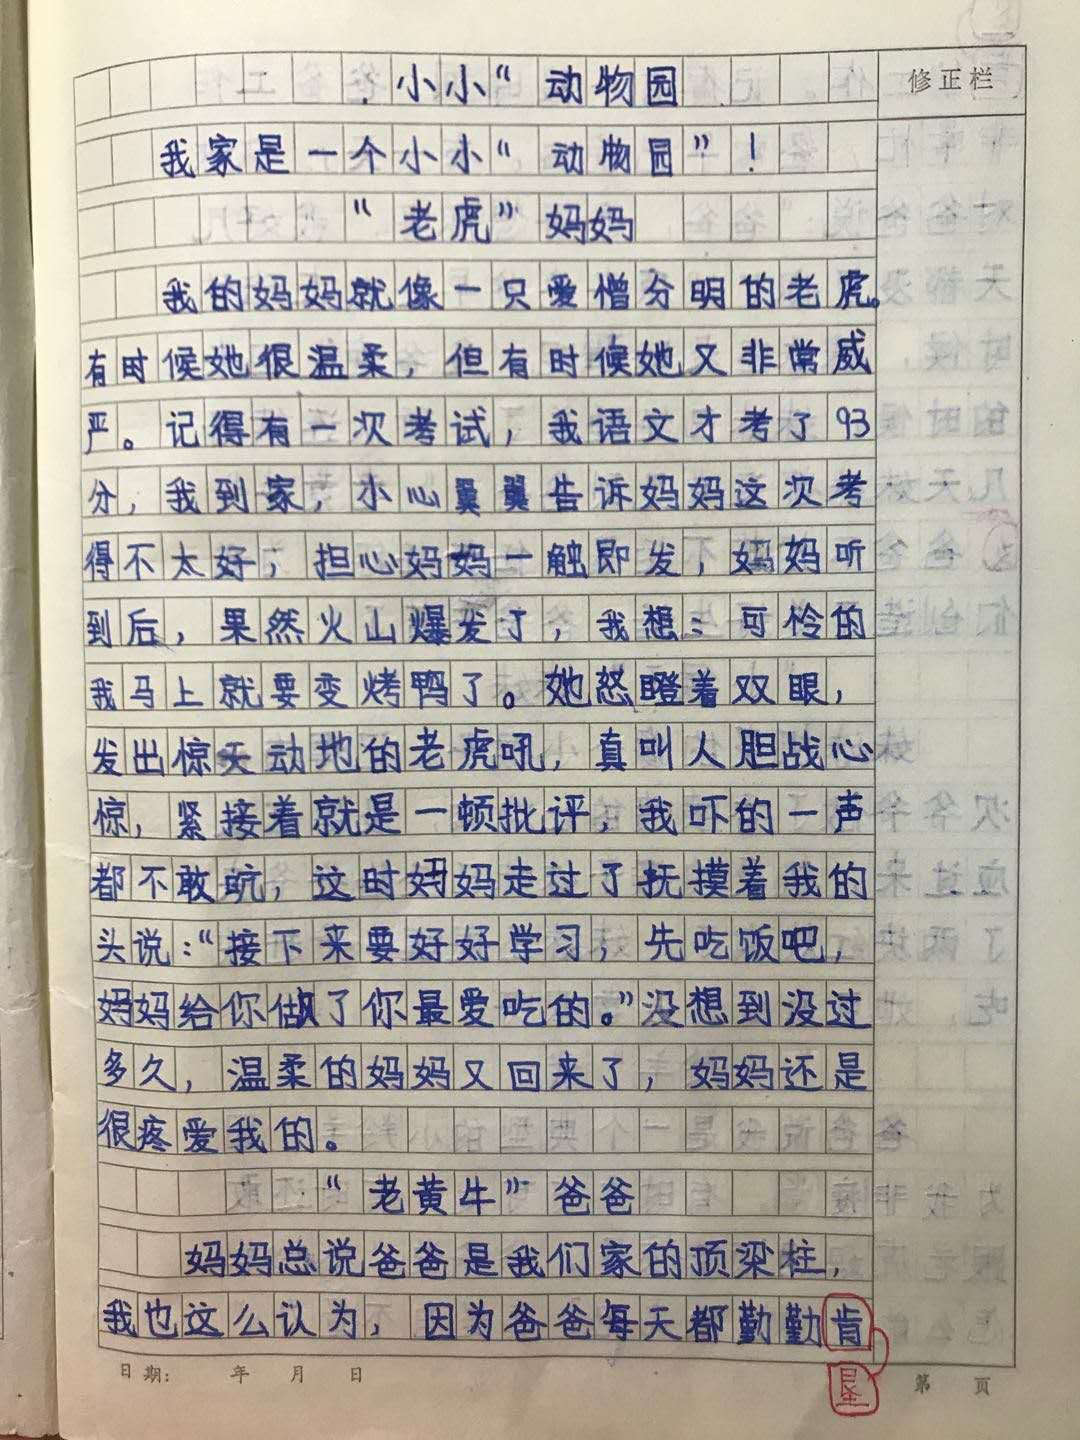 小小“动物园
修正栏
我家是一个小小“动物园”！
“老虎”妈妈
我的妈妈就像一只爱憎分明的老虎。
有时候她很温柔，但有时候她又非常威
严。记得有一次考试，我语文才考了93
分，我到家，小心翼翼告诉妈妈这次考
得不太好，担心妈妈一触即发，妈妈听
到后，果然火山爆发了，我想：可怜的
我马上就要变烤鸭了。她怒瞪着双眼，
发出惊天动地的老虎吼，真叫人胆战心
惊，紧接着就是一顿批评，我吓的一声
都不敢吭，这时妈妈走过了抚摸着我的
头说：“接下来要好好学习，先吃饭吧，
妈妈给你做了你最爱吃的。”没想到没过
多久，温柔的妈妈又回来了，妈妈还是
很疼爱我的。
“老黄牛”爸爸
妈妈总说爸爸是我们家的顶梁柱，
我也这么认为，因为爸爸每天都勤勤肯
垦
日期： 年 月 日
第 页